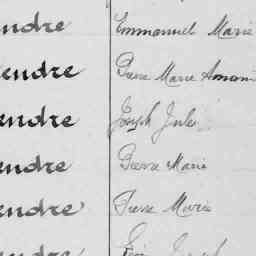 endre Emmanuel Marie
endre Pierre Marie Amand
endre Joseph Jules
endre Pierre Marie
endre Pierre Marie
endre